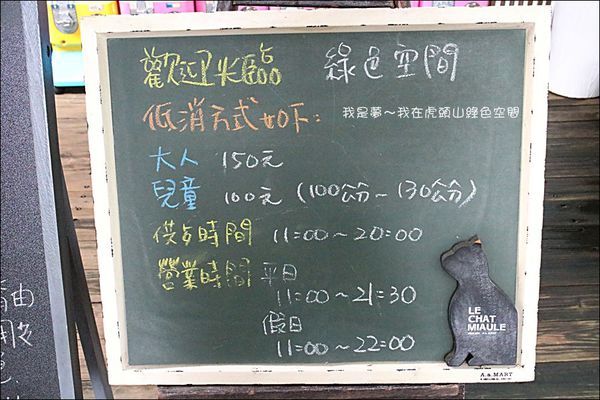 歡迎光臨 綠色空間
低消方式如下：
我是夢～我在虎頭山綠色空間
大人 150元
兒童 100元 (100公分～130公分)
供餐時間 11:00～20:00
營業時間 平日
11:00～21:30
假日
11:00～22:00
LE
CHAT
MIAULE
A.a.MART